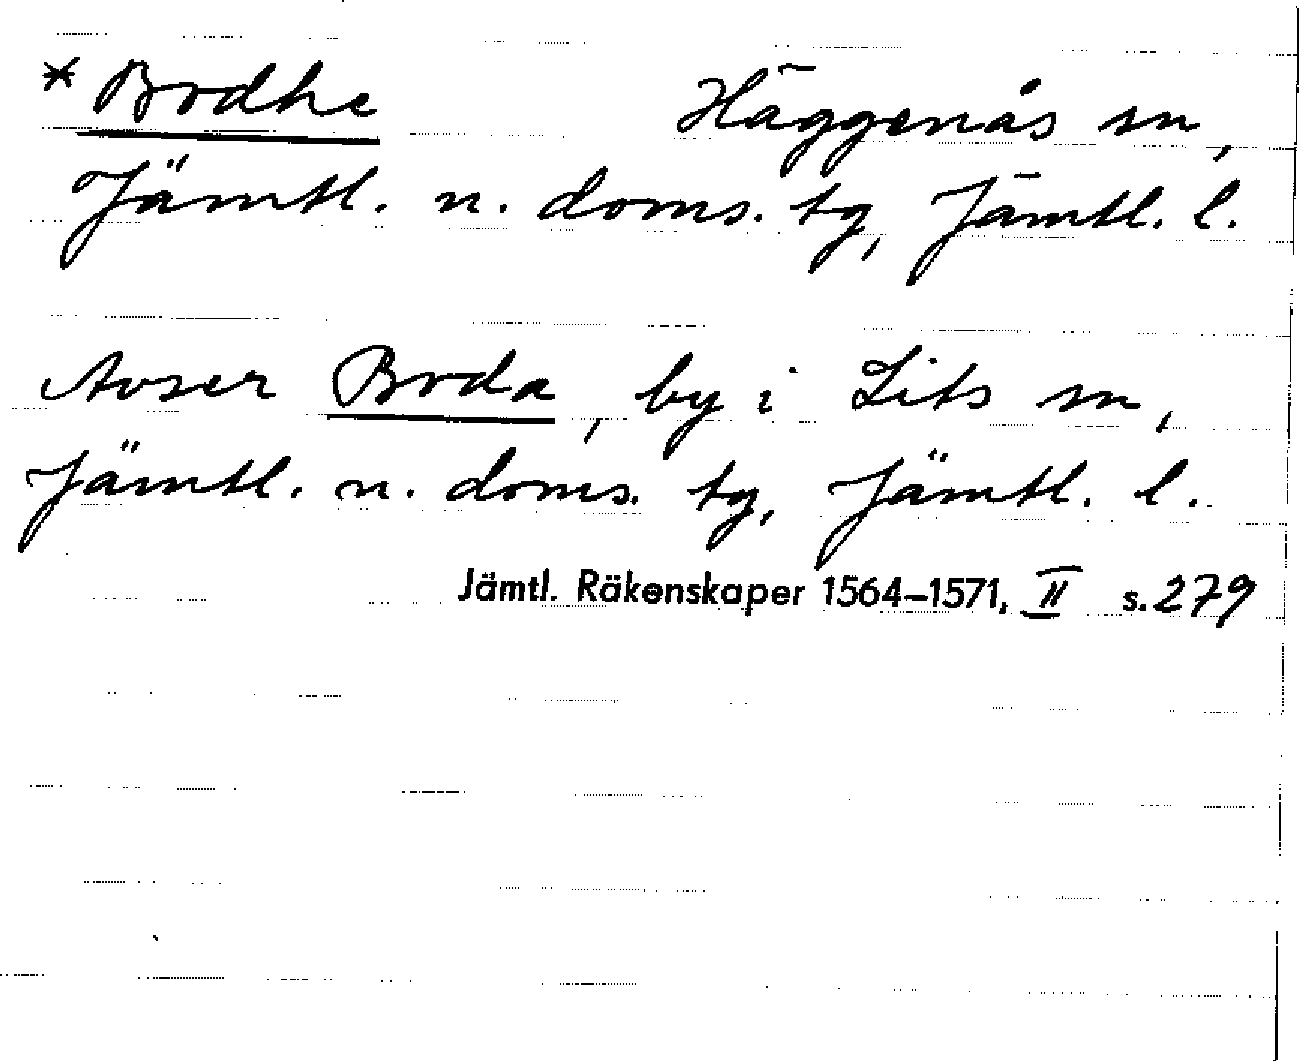 * Brodhe Häggenås sn,
Jämtl. n. doms. tg, Jämtl. l.
Avser Broda, by i Lits sn,
Jämtl. n. doms. tg, Jämtl. l.
Jämtl. Räkenskaper 1564–1571, II s. 279